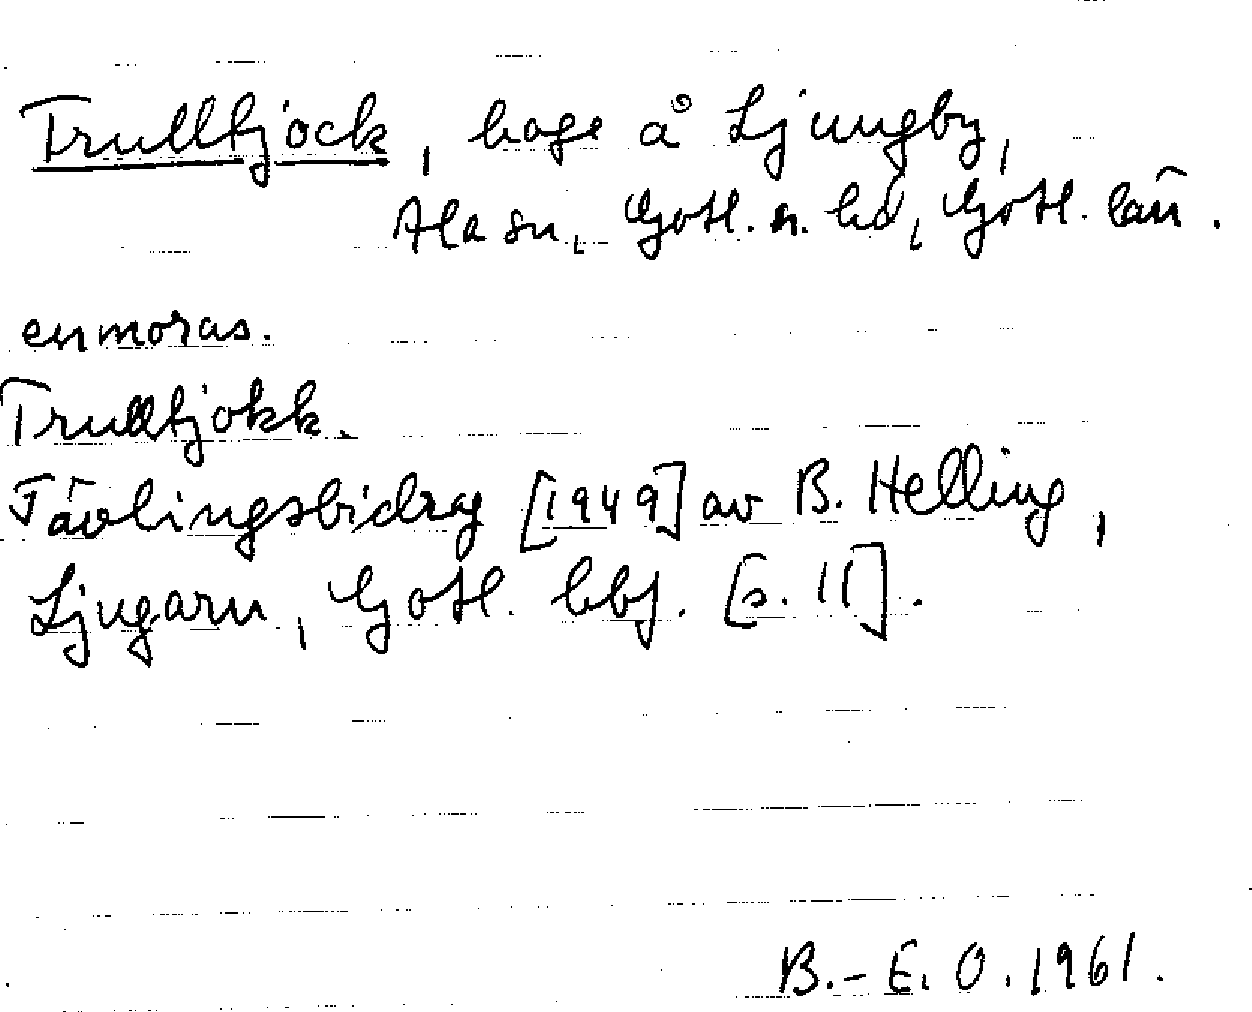 Trullbjock, hage å Ljungby,
Ala sn, Gotl. n. hd, Gotl. län.
enmoras.
Trullbjokk.
Tävlingsbidrag [1949] av B. Helling,
Ljugarn, Gotl. hbf. [s. 11].
B.-E. O. 1961.